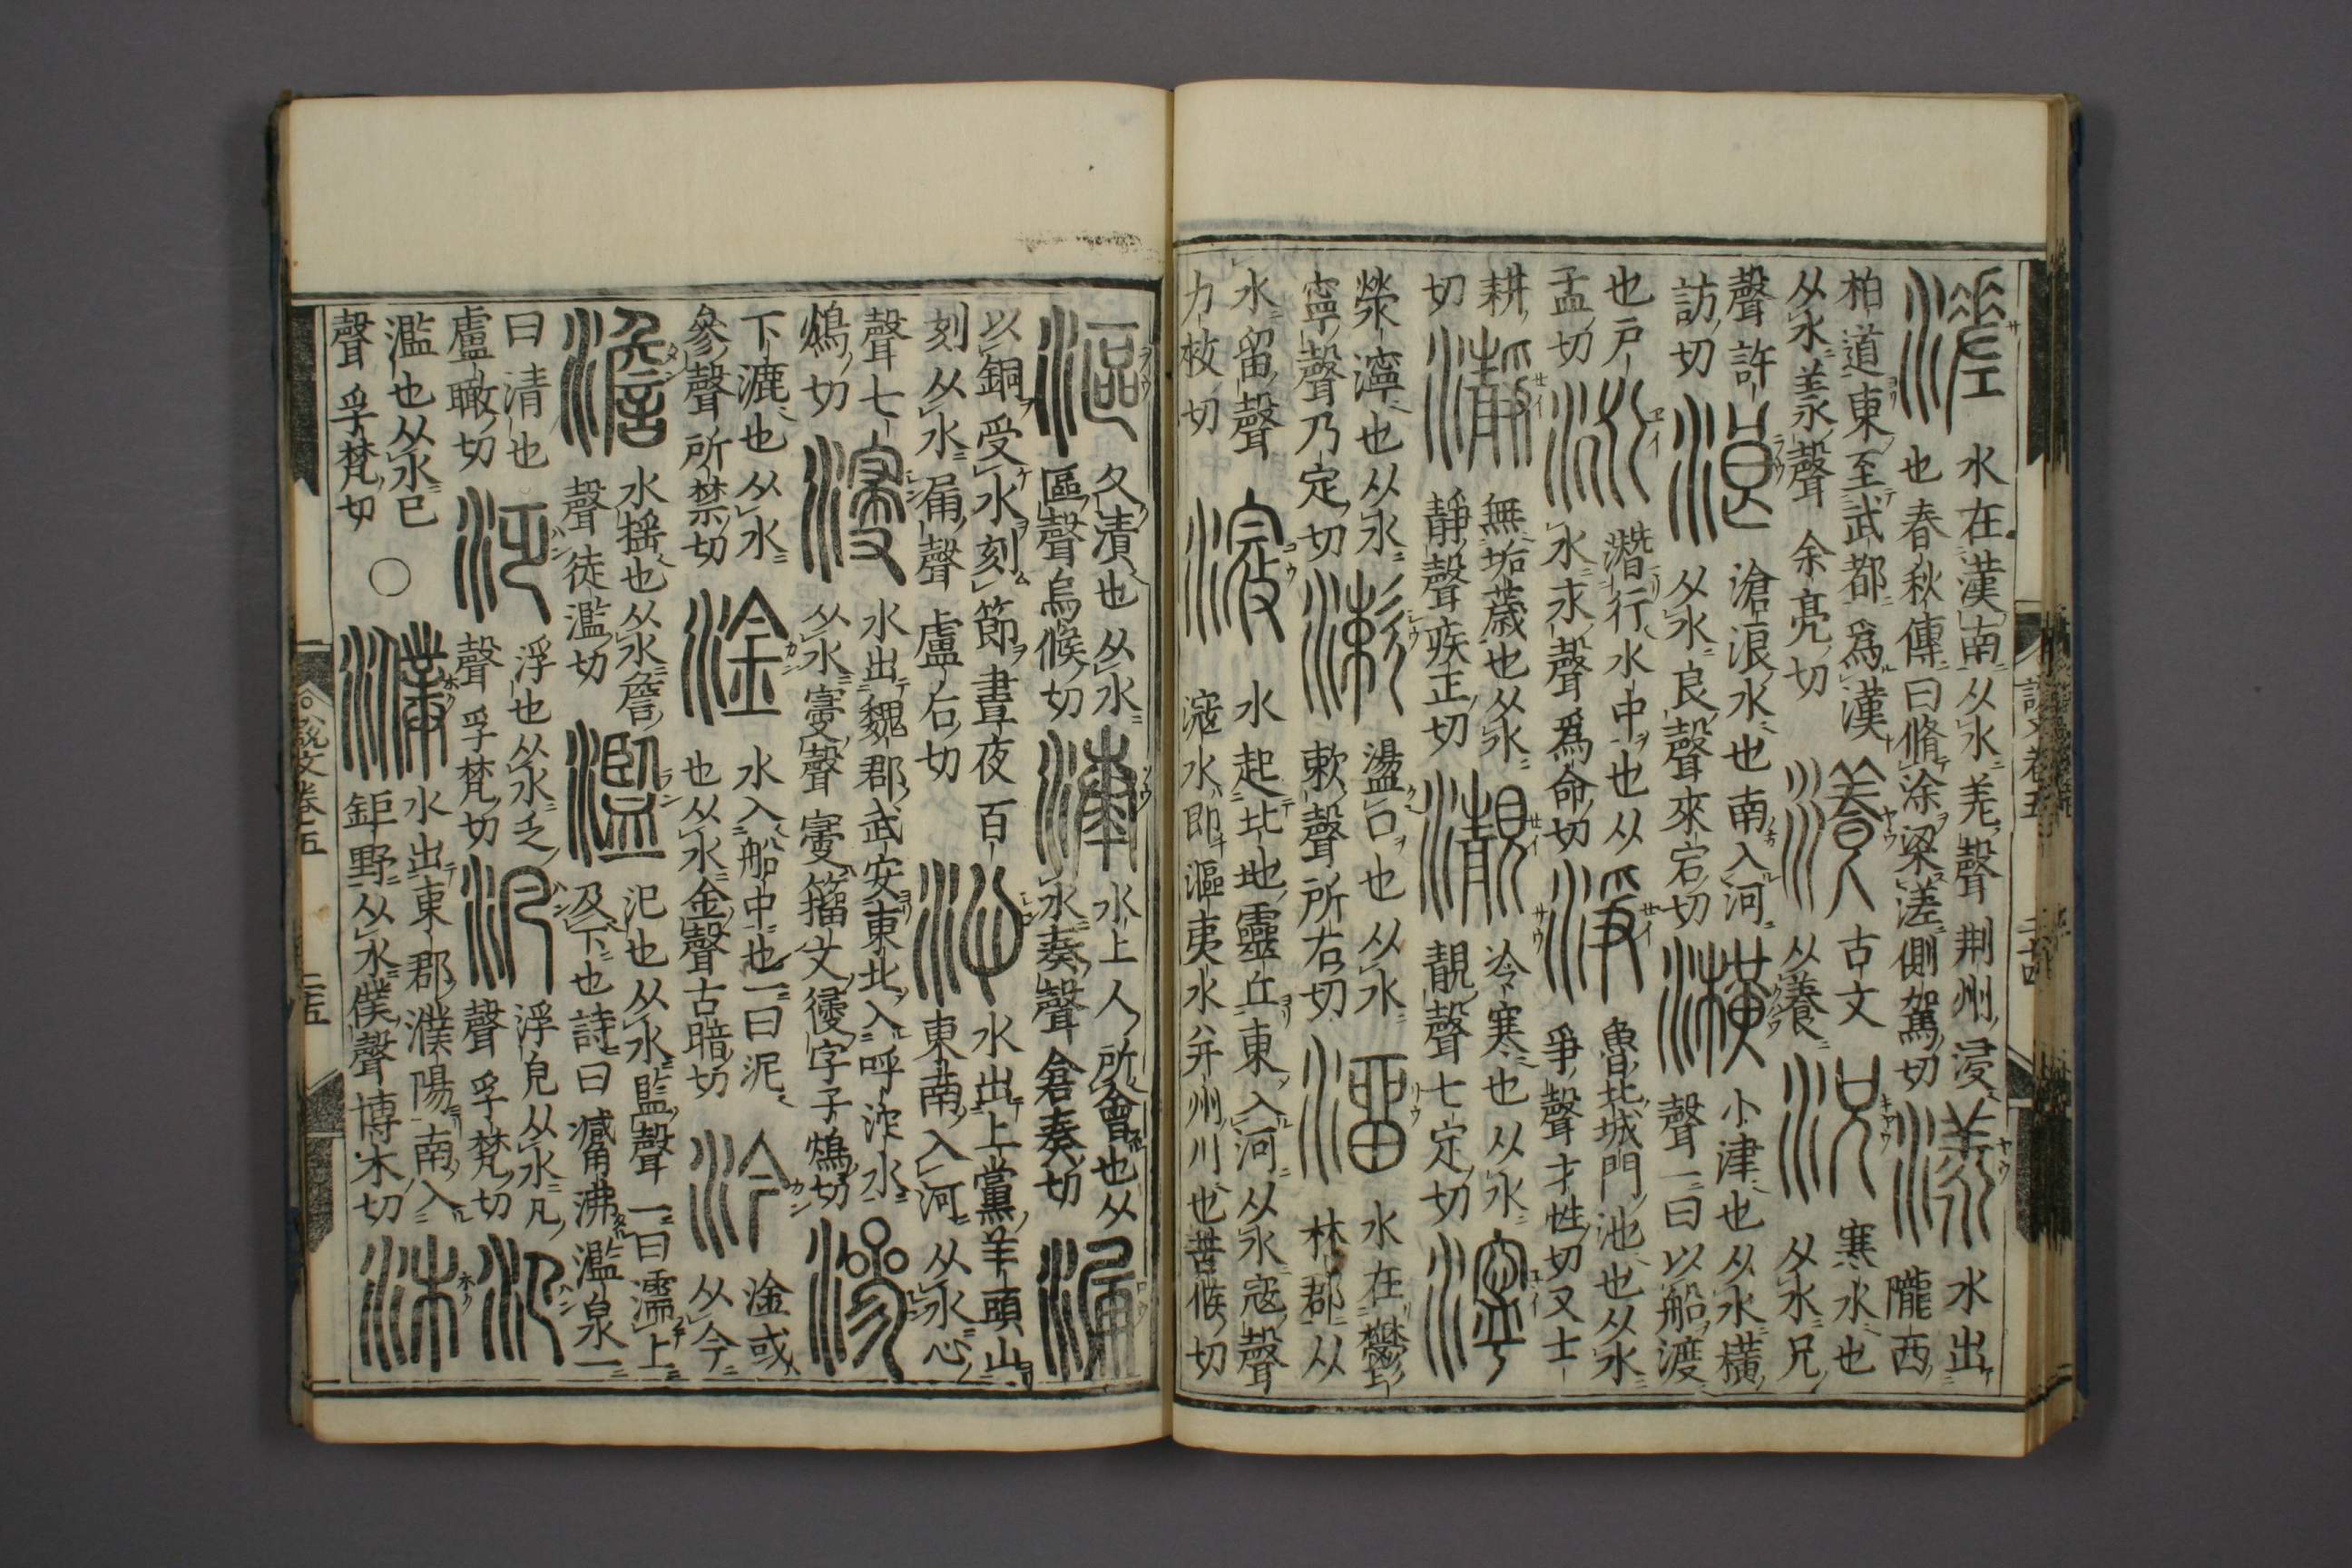 溠 水在漢南从水差聲荆州浸
也春秋傳曰脩涂梁溠側駕切
漾 水出
隴西
柏道東至武都爲漢
从水羕聲余亮切
瀁 古文
从養
況 寒水也
从水兄
聲許
訪切
浪 滄浪水也南入河
从水良聲來宕切
橫 小津也从水橫
聲一曰以船渡
也戶
孟切
泳 潛行水中也从
水永聲爲命切
淨 魯北城門池也从水
爭聲才性切又士
耕
切
瀞 無垢薉也从水
靜聲疾正切
冷寒也从水
靚聲七定切
濘
滎濘也从水
寧聲乃定切
漱 盪口也从水
欶聲所右切
溜 水在鬱
林郡从
水留聲
力救切
滱 水起北地靈丘東入河从水寇聲
滱水即漚夷水并州川也苦候切
說文卷五 二十四
漚 久漬也从水
區聲烏候切
湊 水上人所會也从
水奏聲倉奏切
漏
以銅受水刻節晝夜百
刻从水漏聲盧后切
沁 水出上黨羊頭山
東南入河从水心
聲七
鴆切
濅 水出魏郡武安東北入呼沱水
从水㝱聲㝱籀文字子鴆切
滲
下漉也从水
參聲所禁切
淦 水入船中也一曰泥
也从水金聲古暗切
汵 淦或
从今
澹 水揺也从水詹
聲徒濫切
濫 氾也从水監聲一曰濡上
及下也詩曰觱沸濫泉一
曰清也
盧瞰切
泛 浮也从水乏
聲孚梵切
汎 浮皃从水凡
聲孚梵切
氾
濫也从水㔾
聲孚梵切
○
濮 水出東郡濮陽南入
鉅野从水僕聲博木切
沐
說文卷五 二十五